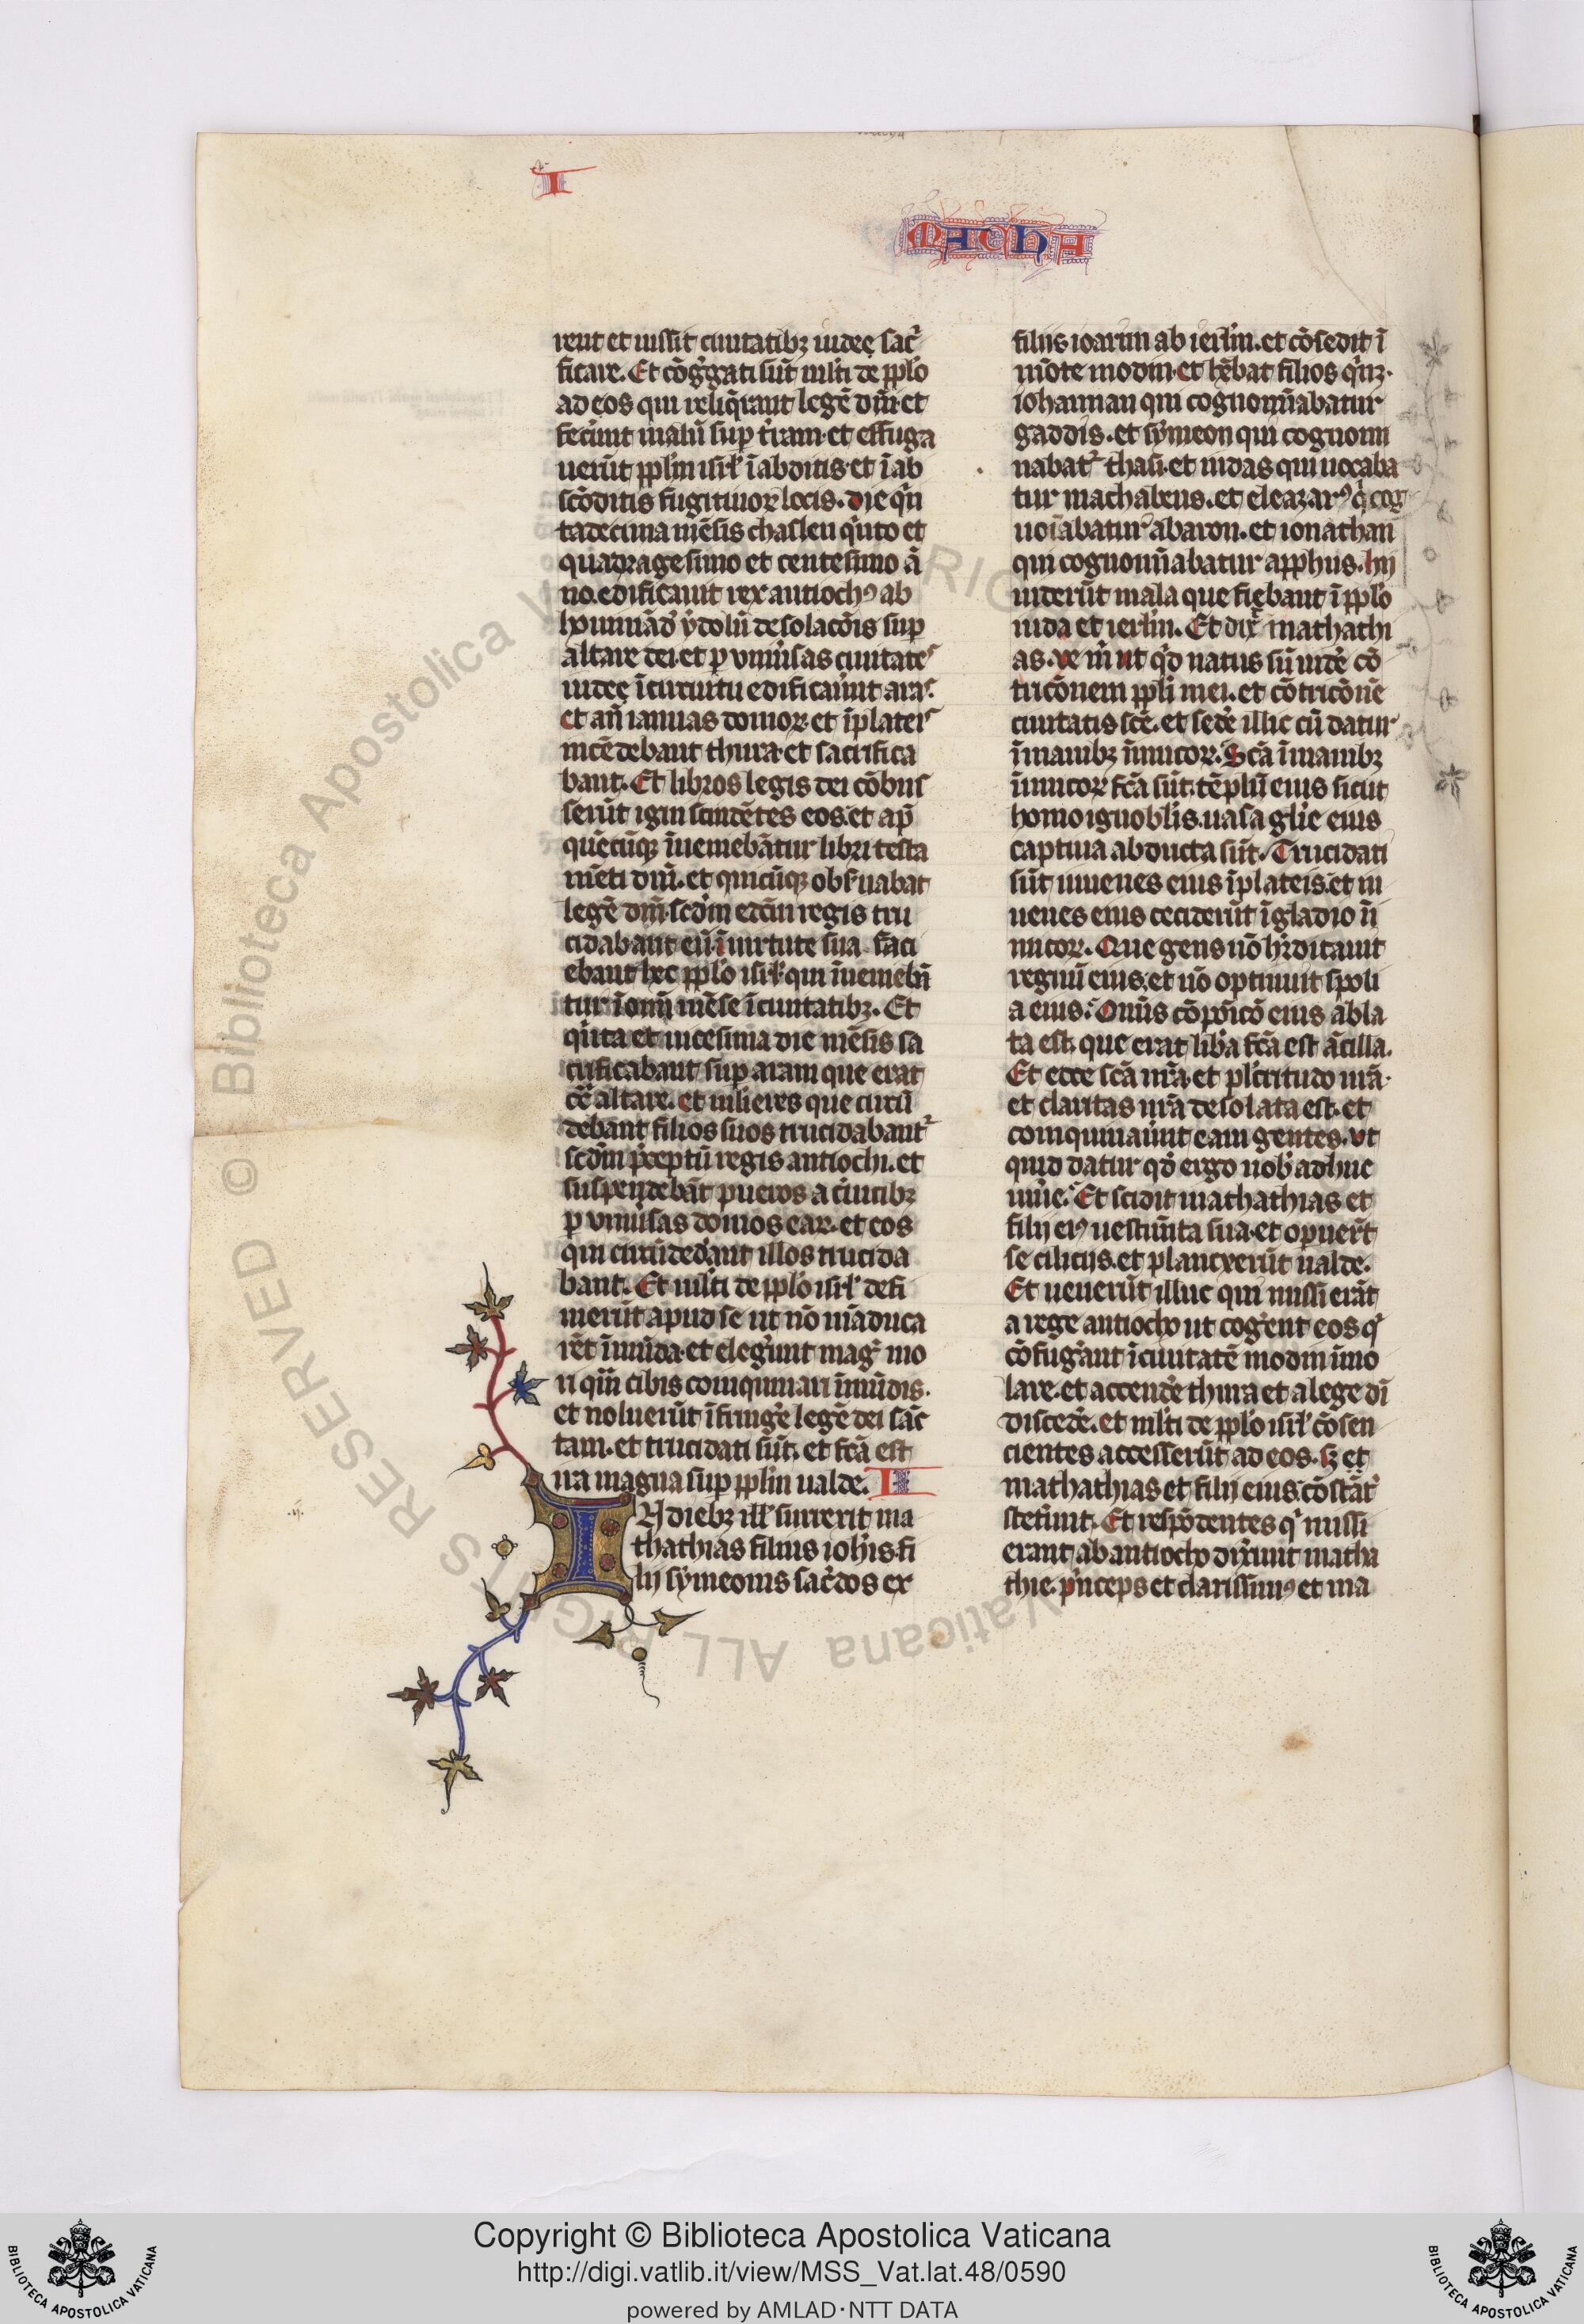 I
MACHA
rent et iussit ciuitatibꝫ iudeę sac̉
ficare. Et cōg̉gati sūt ml̉ti de pp̄lo
ad eos qui reliq̉rant legē dn̄i. et
fecerunt malū sup̱ t̉ram. et effuga
uerūt pp̄lm isrl̓ ī abditis. et ī ab
scōditis fugitiuoꝝ locis. die qͥn
tadecima mēsis chasleu qͥnto et
quadragesimo et centesimo ā
no. edificauit rex antiochꝰ ab
hominād̓ ydolū desolacōis sup̱
altare dei. et ꝑ vniũsas ciuitates
iudeę ī circuitu edificauer̉unt aras.
et an̄ ianuas domoꝝ. et ī plateis
incēdebant thura. et sacrifica
bant. Et libros legis dei cōbus
serūt igni scindētes eos. et ap̱
quēcūqꝫ īueniebātur libri testa
mēti dn̄i. et quicūqꝫ obs̉uabat
legē dn̄i. scd̓m edc̄m regis tru
cidabant eū. ī uirtute sua faci
ebant hec pp̄lo isrl̓ qui īuenieb̄n
tur ī om̄i mēse ī ciuitatibꝫ. Et
qͥnta et uicesima die mēsis sa
crificabant sup̱ aram que erat
cō altare. et ml̓ieres que circū
debant filios suos trucidabantᷣ
scd̓m p̉ceptū regis antiochi. et
suspendebāt pueros a ceruicibꝫ
ꝑ vniũsas domos eaꝝ. et eos
qui circūcid̉ant illos trucida
bant. Et ml̉ti de pp̄lo isrl̓ defi
nierūt apud se ut nō māduca
rēt īmūda. et eleg̉unt mag̉ mo
ri qͣm cibis coinquinari īmūdis.
et noluerūt īfring̉e legē dei sāc
tam. et trucidati sūt. et fc̄a est
ira magna sup̱ pp̄lm ualde. II
IN diebꝫ ill̓ surrexit ma
thathias filius ioh̓is. fi
lij symeonis sac̉dos ex
filiis ioarim ab ierl̓m. et cōsedit ī
mōte modin. et hēbat filios qͥnqꝫ.
iohannan qui cognomīabatur
gaddis. et symeon qui cognomi
nabatᷣ thasi. et iudas qui uocaba
tur machabeus. et eleazarꝰ qͥ cog
noīabatur abaron. et ionathan
qui cognomīabatur apphus. hij
uiderūt mala que fiebant ī pp̄lo
iuda et ierl̓m. Et dix̉ mathathi
as. ve m̉ ut qͥd natus sū uid̉e cō
tricōnem pp̄li mei. et cōtricōnē
ciuitatis scē. et sed̉e illic cū datur
ī manibꝫ inimicoꝝ. Scā ī manibꝫ
inimicoꝝ fc̄a sūt. tēplū eius sicut
homo ignobl̓is. uasa gl̓ie eius
captiua abducta sūt. Trucidati
sūt iuuenes eius ī plateis. et iu
uenes eius ceciderūt ī gladio in̄
micoꝝ. Que gens nō h̉editauit
regnū eius. et nō optinuit spoli
a eius. Omīs cōpōicō eius abla
ta est. que erat lib̉a fc̄a est ācilla.
Et ecce scā nr̄a. et pulc̉ritudo nr̄a.
et claritas nr̄a desolata est. et
coinquinauer̉unt eam gentes. vt
quid datur qd̓ ergo nob̓ adhuc
uiu̓e. Et scidit mathathias et
filij eiꝰ uestim̄ta sua. et opuer̄t
se ciliciis. et planxerūt ualde.
Et uenerūt illuc qui missi erāt
a rege antiocho ut cog̉ent eos qͥ
cōfug̉ant ī ciuitatē modin īmo
lare. et accend̉e thura et a lege dī
disced̉e. et ml̉ti de pp̄lo isrl̓ cōsen
cientes accesserūt ad eos. sꝫ et
mathathias et filij eius cōstāt̉
stet̉unt. Et respōdentes qͥ missi
erant ab antiocho dix̉unt matha
thie. pͥnceps et clarissimꝰ et ma
Copyright © Biblioteca Apostolica Vaticana
http://digi.vatlib.it/view/MSS_Vat.lat.48/0590
powered by AMLAD·NTT DATA
BIBLIOTECA APOSTOLICA VATICANA
BIBLIOTECA APOSTOLICA VATICANA
© Biblioteca Apostolica Vaticana ALL RIGHTS RESERVED